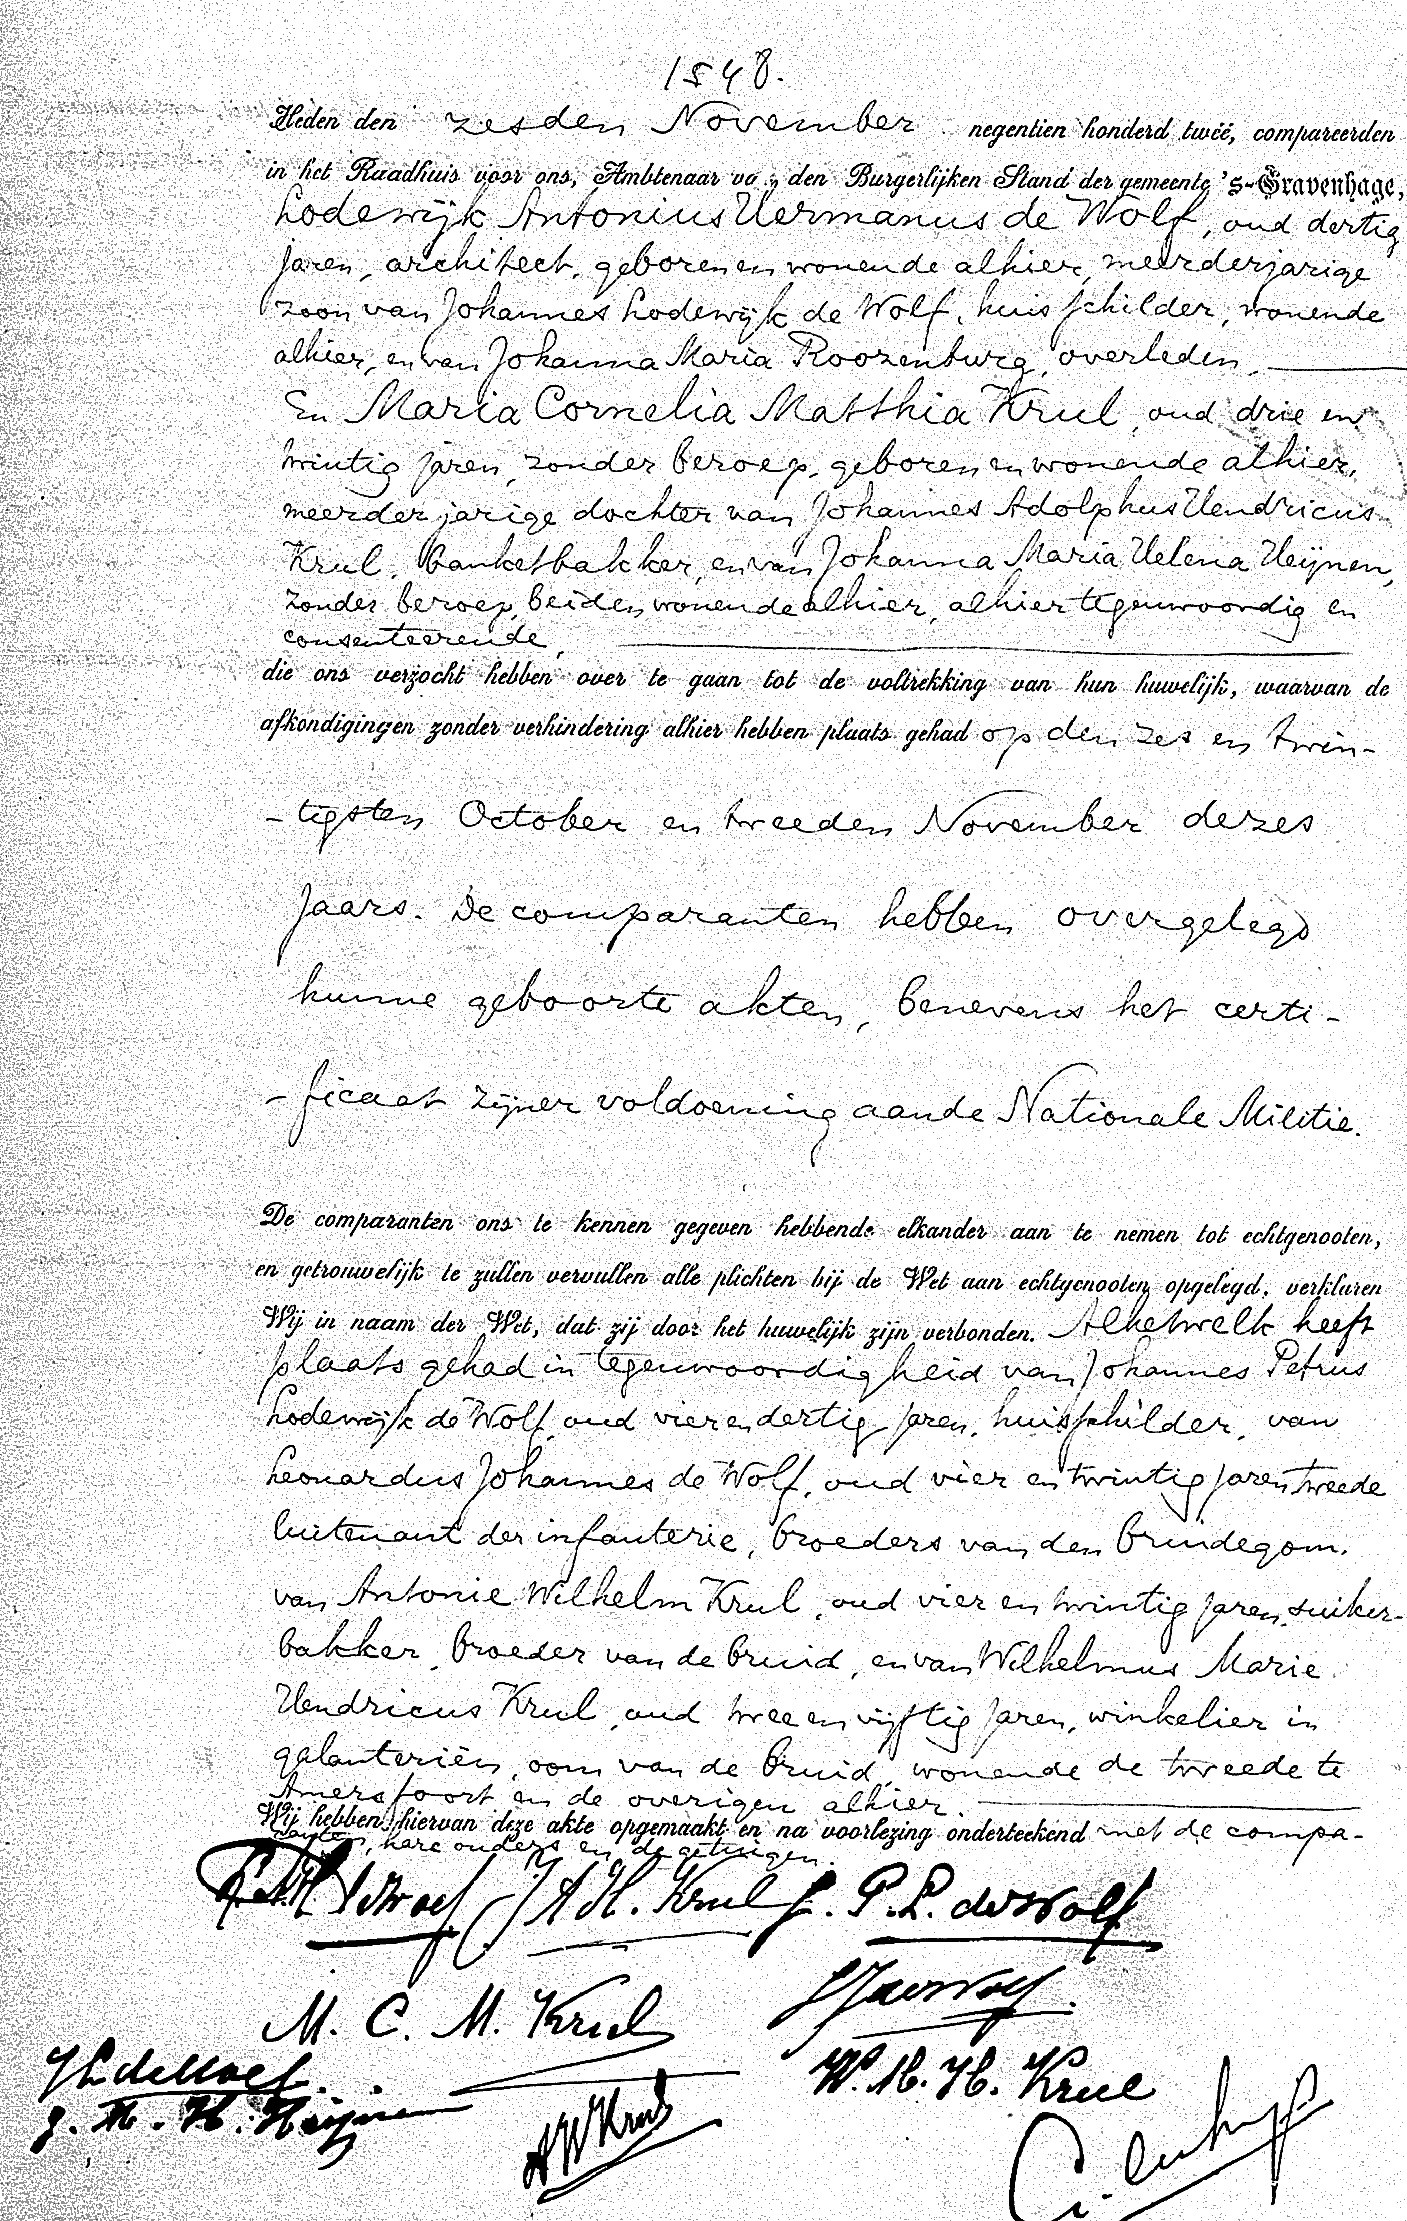 1548.
Heden den zesden November negentien honderd twéé, compareerden
in het Raadhuis voor ons, Ambtenaar va n den Burgerlijken Stand der gemeente 's-Gravenhage,
Lodewijk Antonius Hermanus de Wolf, oud dertig
jaren, architect, geboren en wonende alhier, meerderjarige
zoon van Johannes Lodewijk de Wolf, huisschilder, wonende
alhier, en van Johanna Maria Roozenburg, overleden.
En Maria Cornelia Matthia Krul, oud drie en
twintig jaren, zonder beroep, geboren en wonende alhier,
meerderjarige dochter van Johannes Adolphus Hendricus
Krul, banketbakker, en van Johanna Maria Helena Heijnen,
zonder beroep, beiden wonende alhier, alhier tegenwoordig en
consenteerende,
die ons verzocht hebben over te gaan tot de voltrekking van hun huwelijk, waarvan de
afkondigingen zonder verhindering alhier hebben plaats gehad op den zes en twin-
-tigsten October en tweeden November dezes
jaars. De comparanten hebben overgelegd
hunne geboorte akten, benevens het certi-
-ficaat zijner voldoening aan de Nationale Militie.
De comparanten ons te kennen gegeven hebbende elkander aan te nemen tot echtgenooten,
en getrouwelijk te zullen vervullen alle plichten bij de Wet aan echtgenooten opgelegd, verklaren
Wij in naam der Wet, dat zij door het huwelijk zijn verbonden. Alhetwelk heeft
plaats gehad in tegenwoordigheid van Johannes Petrus
Lodewijk de Wolf, oud vier en dertig jaren, huisschilder, van
Leonardus Johannes de Wolf, oud vier en twintig jaren tweede
luitenant der infanterie, broeders van den bruidegom.
van Antonie Wilhelm Krul, oud vier en twintig jaren, suiker-
bakker, broeder van de bruid, en van Wilhelmus Marie
Hendricus Krul, oud twee en vijftig jaren, winkelier in
galanteriën, oom van de bruid, wonende de tweede te
Amersfoort en de overigen alhier.
Wij hebben hiervan deze akte opgemaakt en na voorlezing onderteekend met de compa-
ranten, hare ouders en de getuigen.
de Wolf J A H. Krul J. P. L. de Wolf
M. C. M. Krul L J de Wolf
J L de Wolf W. M. H. Krul
J. M. H. Heijnen A W Krul